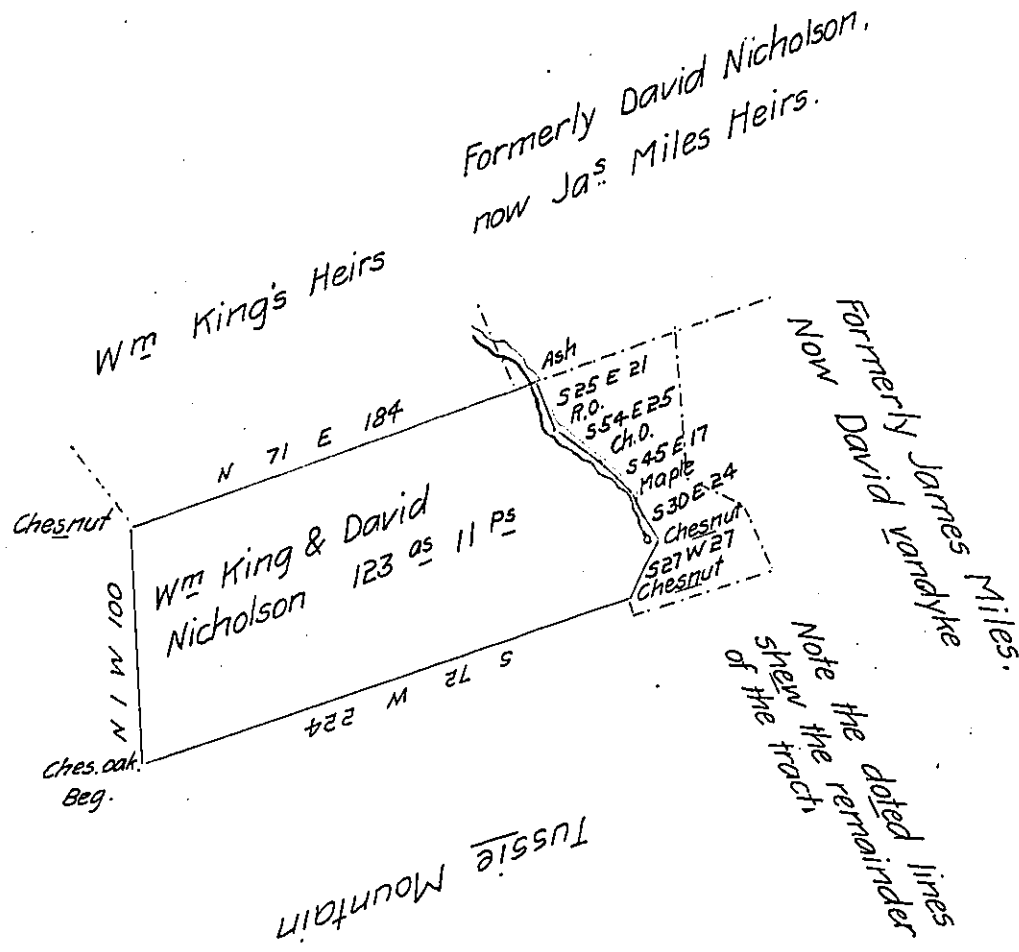 Formerly David Nicholson.
now Jas Miles Heirs.
Wm King's Heirs
Formerly James Miles.
Now David vandyke
Ash
S 25 E 21
R.O.
S 54 E 25
Ch.O.
S 45 E 17
Maple
S 30 E 24
Chesnut
S 27 W 27
Chesnut
N 71 E 184
Chesnut
Wm King & David
Nicholson 123 as 11 Ps
N 1 W 100
S 72 W 224
Ches. oak.
Beg.
Note the doted lines
shew the remainder
of the tract.
Tussie Mountain